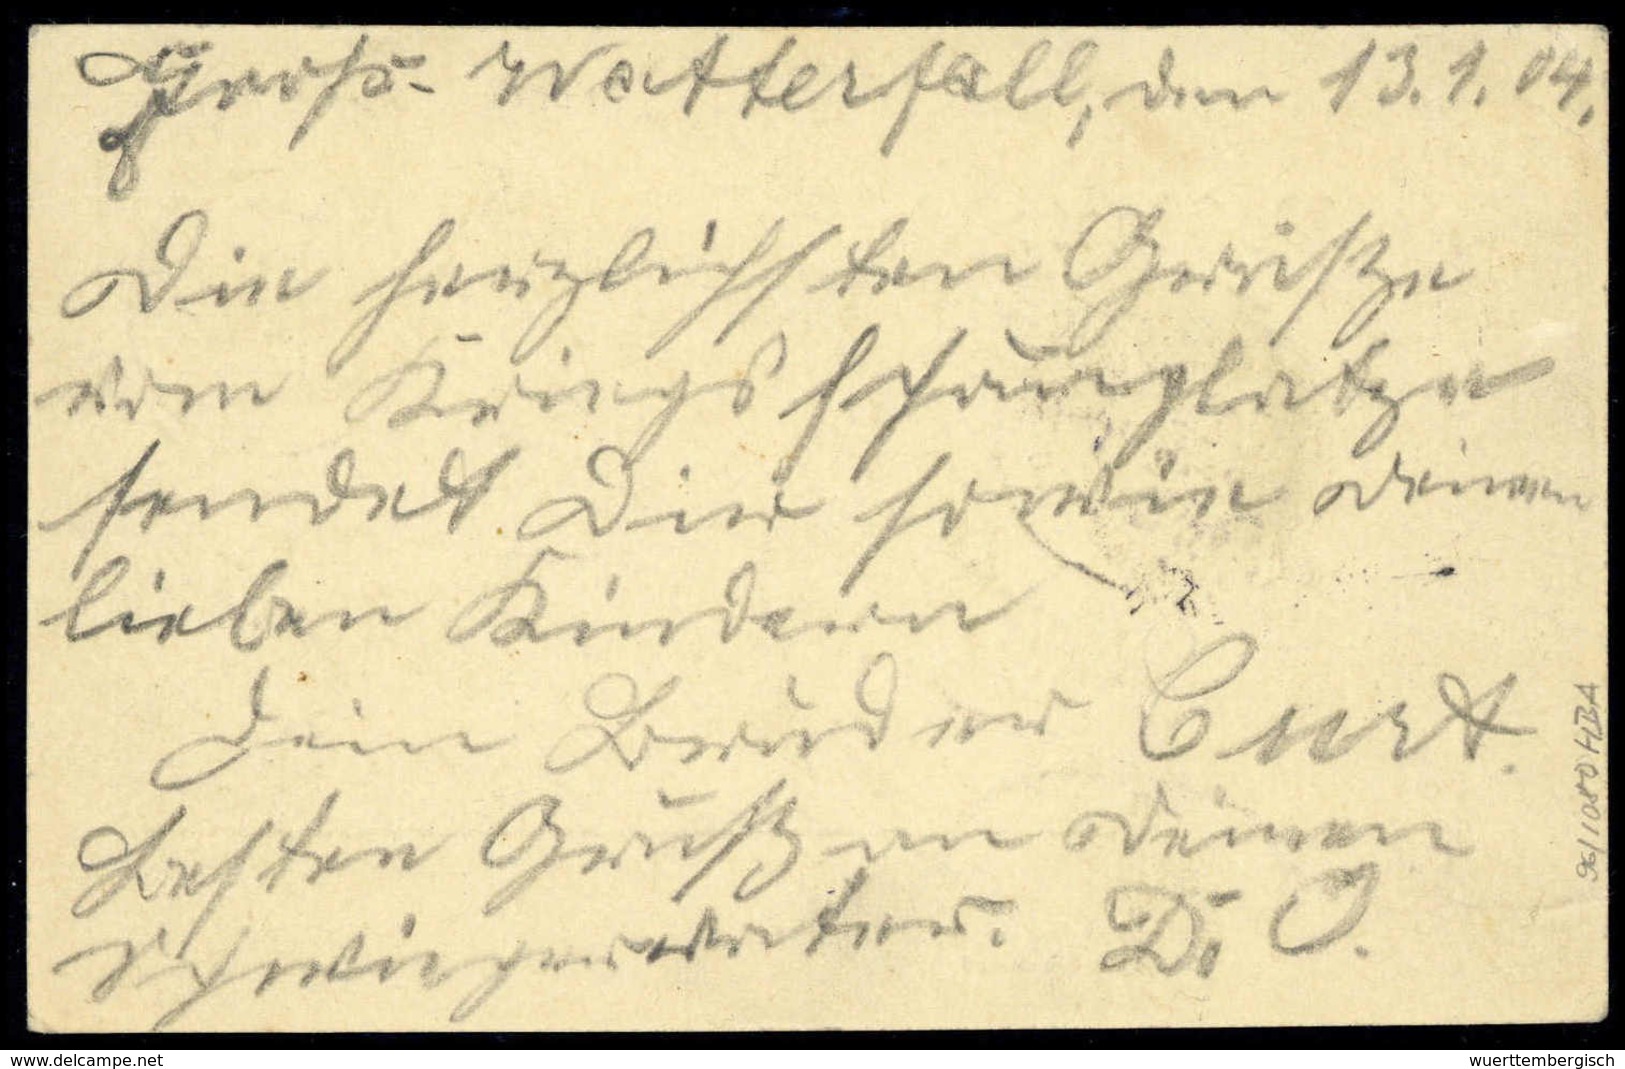 Gross-Watterfall, den 13.1.04.
Die herzlichsten Grüsze
vom Kriegsschauplatze
sendet Dir sowie deinen
lieben Kindern
Dein Bruder Curt.
Besten Gruß an deinen
Schwiegervater. D. O.
96/1080 HBA
www.delcampe.net
wuerttembergisch